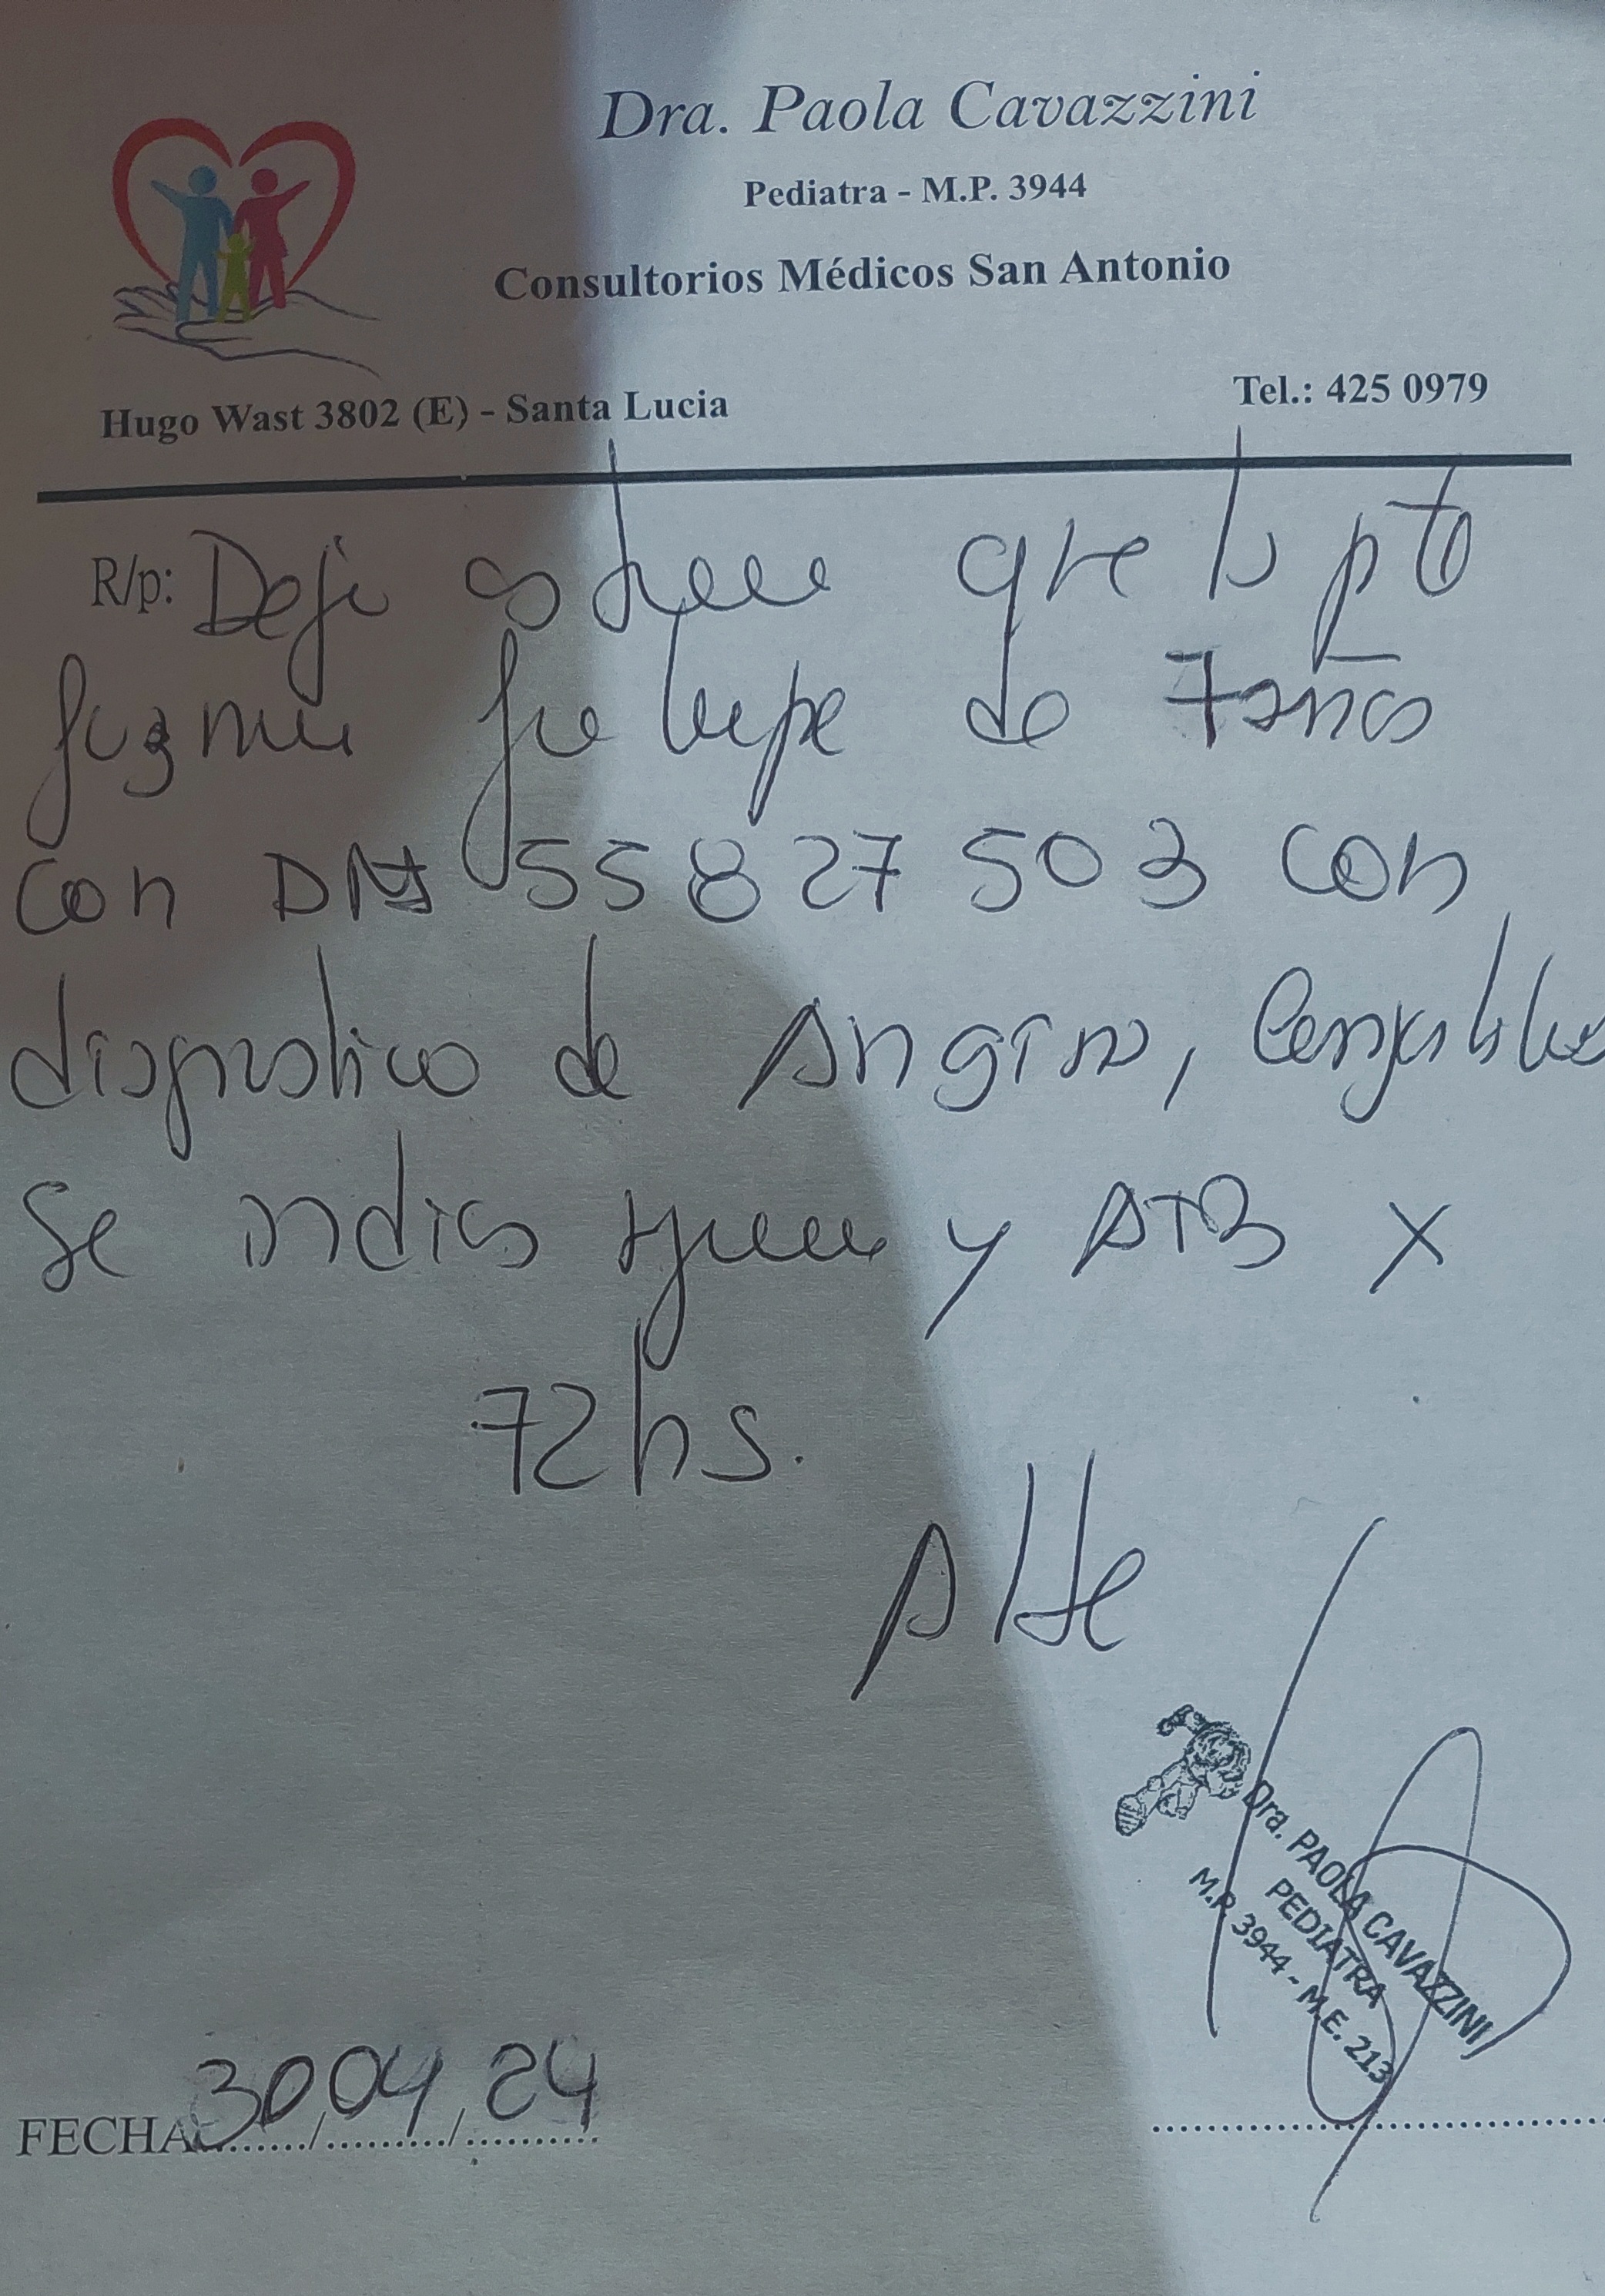 Dra. Paola Cavazzini
Pediatra - M.P. 3944
Consultorios Médicos San Antonio
Hugo Wast 3802 (E) - Santa Lucia
Tel.: 425 0979
R/p: Dejo que la pte
de 7 años
con DNI 55 827 503 con
diagnostico de Angina,
Se indica y ATB x
72hs.
Atte
Dra. PAOLA CAVAZZINI
PEDIATRA
M.P. 3944 - M.E. 213
FECHA 30/04/24